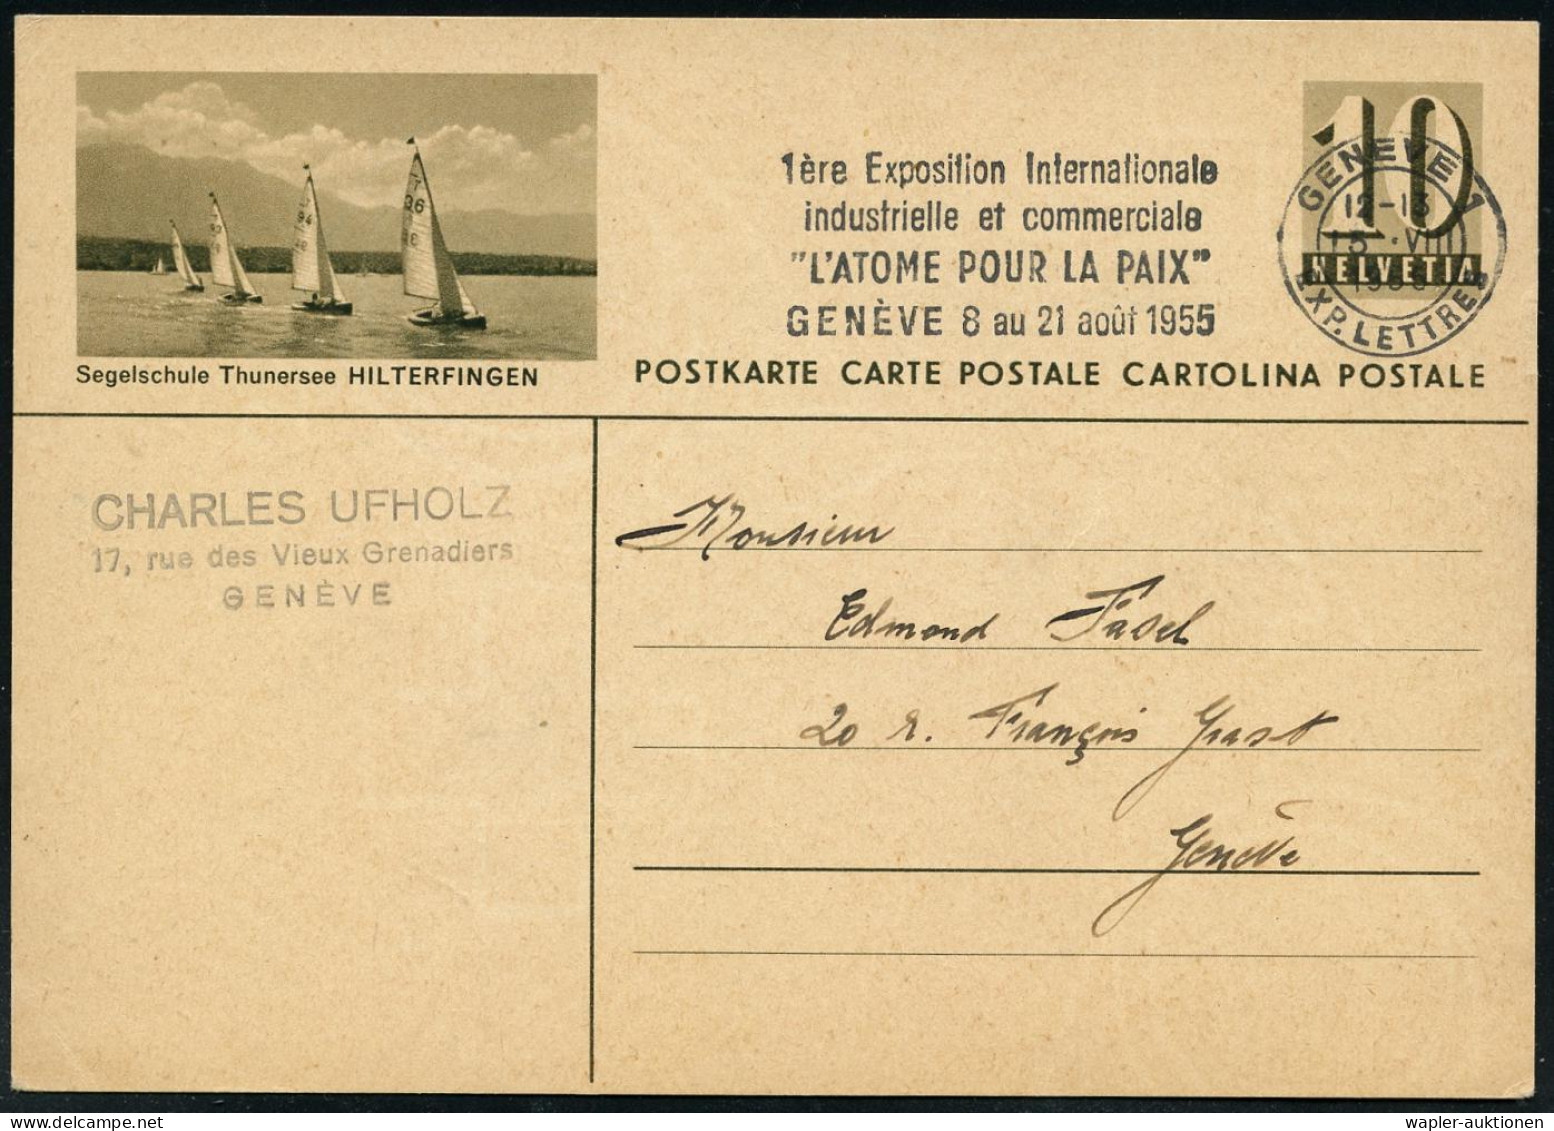 1ère Exposition Internationale
industrielle et commerciale
"L'ATOME POUR LA PAIX"
GENÈVE 8 au 21 août 1955
10
HELVETIA
GENÈVE 1
12-13
VIII
1955
EXP. LETTRES
Segelschule Thunersee HILTERFINGEN
POSTKARTE CARTE POSTALE CARTOLINA POSTALE
CHARLES UFHOLZ
17, rue des Vieux Grenadiers
GENÈVE
Monsieur
Edmond Fasel
20 r. François Grast
Genève
wapler-auktionen